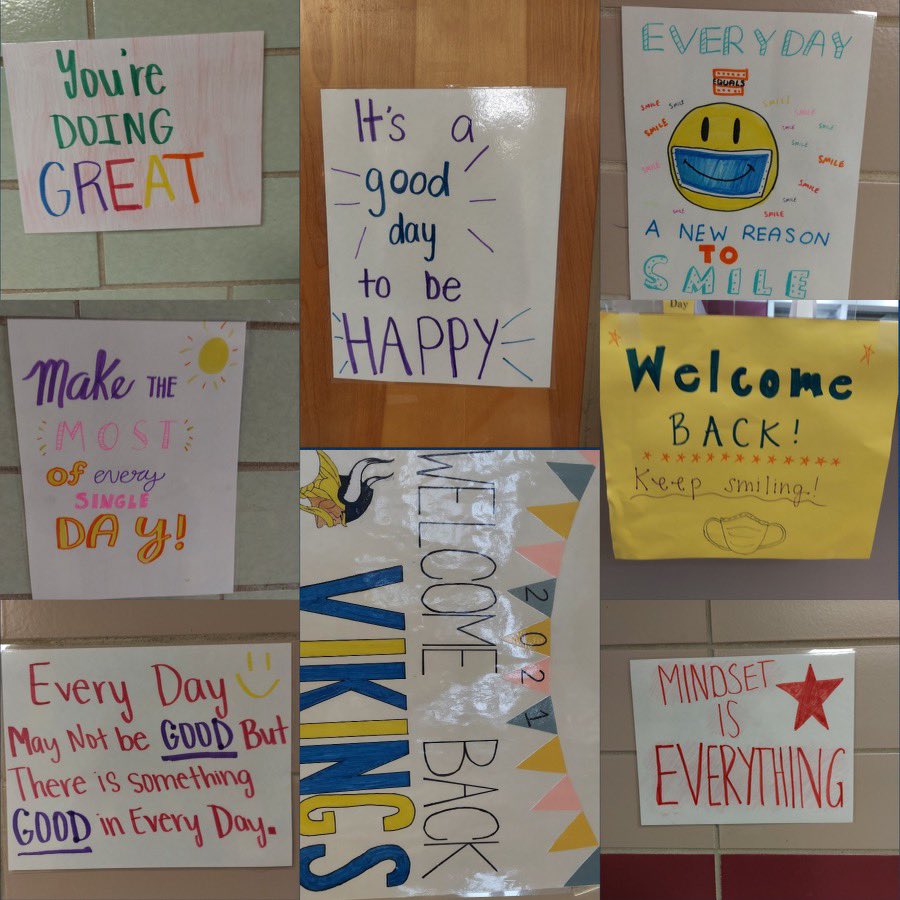 You're
DOING
GREAT
It's a
good
day
to be
HAPPY
EVERYDAY
EQUALS
SMILE SMILE SMILE
SMILE SMILE
SMILE SMILE
SMILE
SMILE SMILE
SMILE
SMILE
SMILE SMILE
A NEW REASON
TO
SMILE
Make THE
MOST
OF every
SINGLE
DAY!
Day
Welcome
BACK!
Keep smiling!
2021
WELCOME BACK
VIKINGS
Every Day
May Not be GOOD But
There is something
GOOD in Every Day.
MINDSET
IS
EVERYTHING